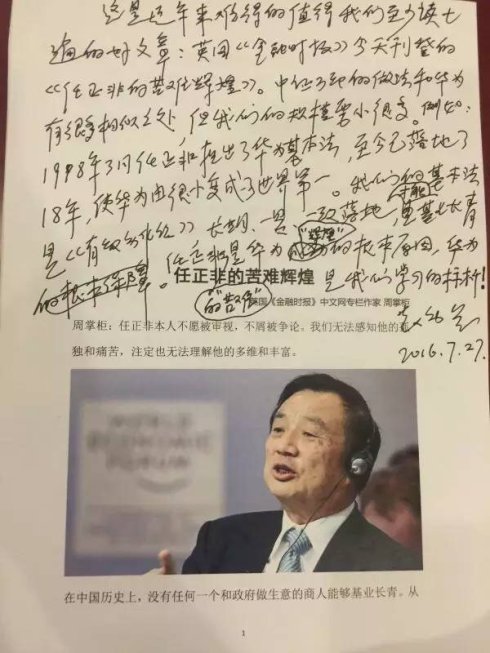 这是近年来难得的值得我们至少读七
遍的好文章：英国《金融时报》今天刊登的
《任正非的苦难辉煌》。中的做法和华为
有很多相似之处，但我们的规模要小很多。例如：
1998年了同任正非推出了华为基本法，至今已落地了
18年，使华为由很小变成了世界第一。我们的基本法
是《有效》长期、一贯、一致落地，才能基业长青
的根本保障。任正非是华为"辉煌"的根本原因，华为
"的苦难"
是我们学习的标杆！
任正非的苦难辉煌
英国《金融时报》中文网专栏作家 周掌柜
2016.7.27.
周掌柜：任正非本人不愿被审视，不屑被争论。我们无法感知他的孤
独和痛苦，注定也无法理解他的多维和丰富。
WORLD
ECONOMIC
FORUM
在中国历史上，没有任何一个和政府做生意的商人能够基业长青。从
1